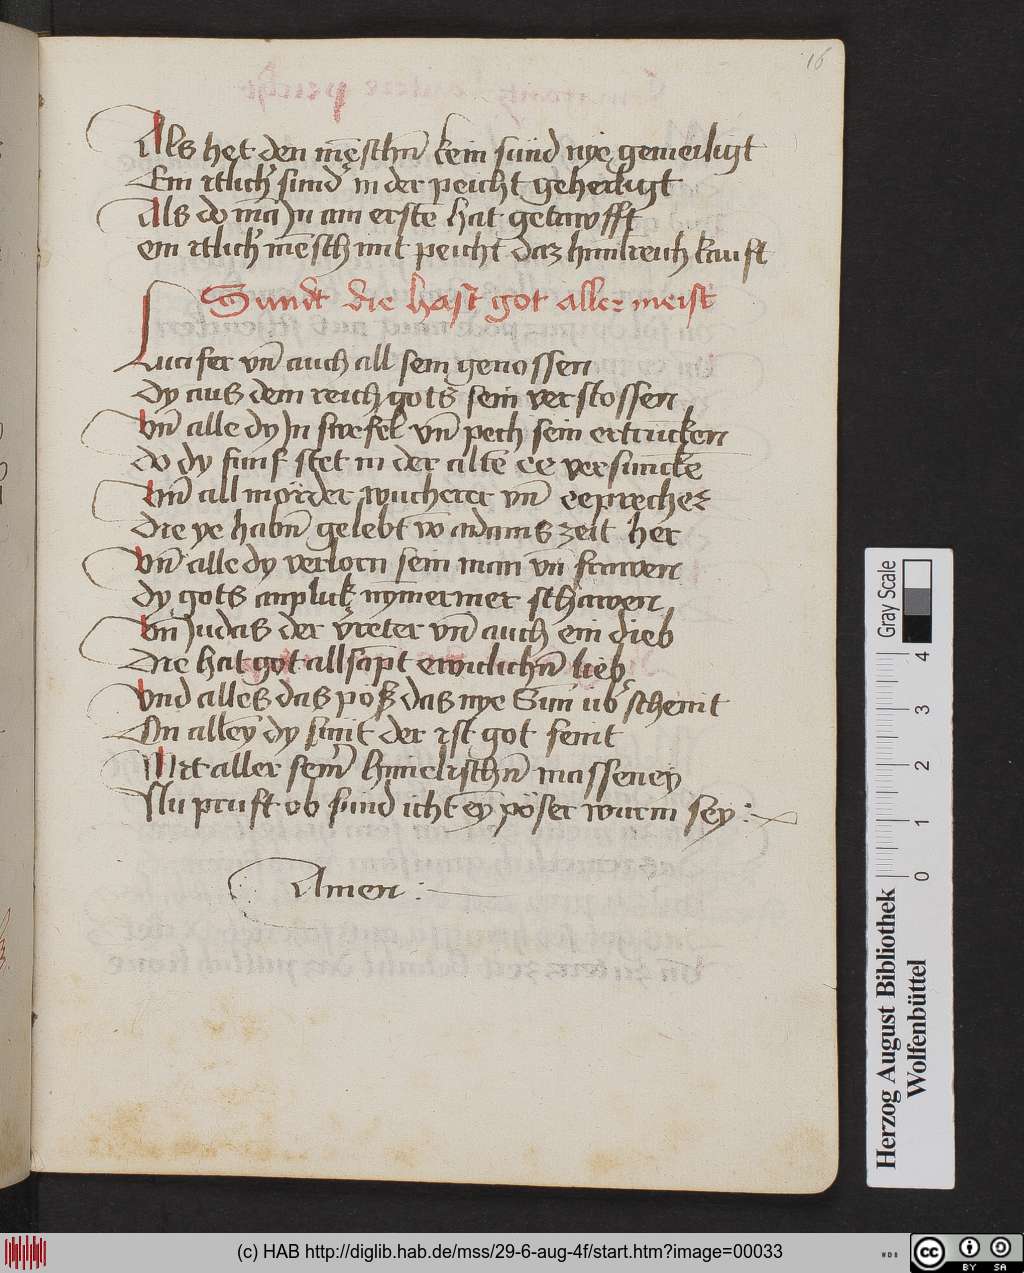 16
Als het den mēschn̄ kein sünd nye gemeiligt
Ein itlicħ sünd̾ in der peicht geheiligt
Als do mā Jn am erstē hat getawfft
ein itlicħ mēsch mit peicht daz himlreich kauft
Sundt die hast got aller meist
Lucifer vn̄ auch all sein genossen
dy aus dem reich gots sein verstossen
Vn̄ alle dy Jn swefel vn̄ pech sein ertrüncken
do dy fünf stet in der altē ee versunckē
Vn̄ all mörder wucherer vn̄ eeprecher
die ye habn̄ gelebt vō adams zeit her
Vn̄ alle dy verlorn sein man vn̄ frawen
dy gots anplick nymermer schawen
Vn̄ Judas der v̾reter vn̄ auch ein dieb
die hat got allsāpt ewiclichn̄ lieb
Vnd alles das poß das nye Sun üb̾scheint
On alley dy sünt der ist got feint
Mit aller sein̾ himelischn̄ masseney
Nu pruft ob sünd icht ey pöser wurm sey :
Amen :
Herzog August Bibliothek
Wolfenbüttel
Gray Scale
0 1 2 3 4
(c) HAB http://diglib.hab.de/mss/29-6-aug-4f/start.htm?image=00033
WDB
cc BY SA